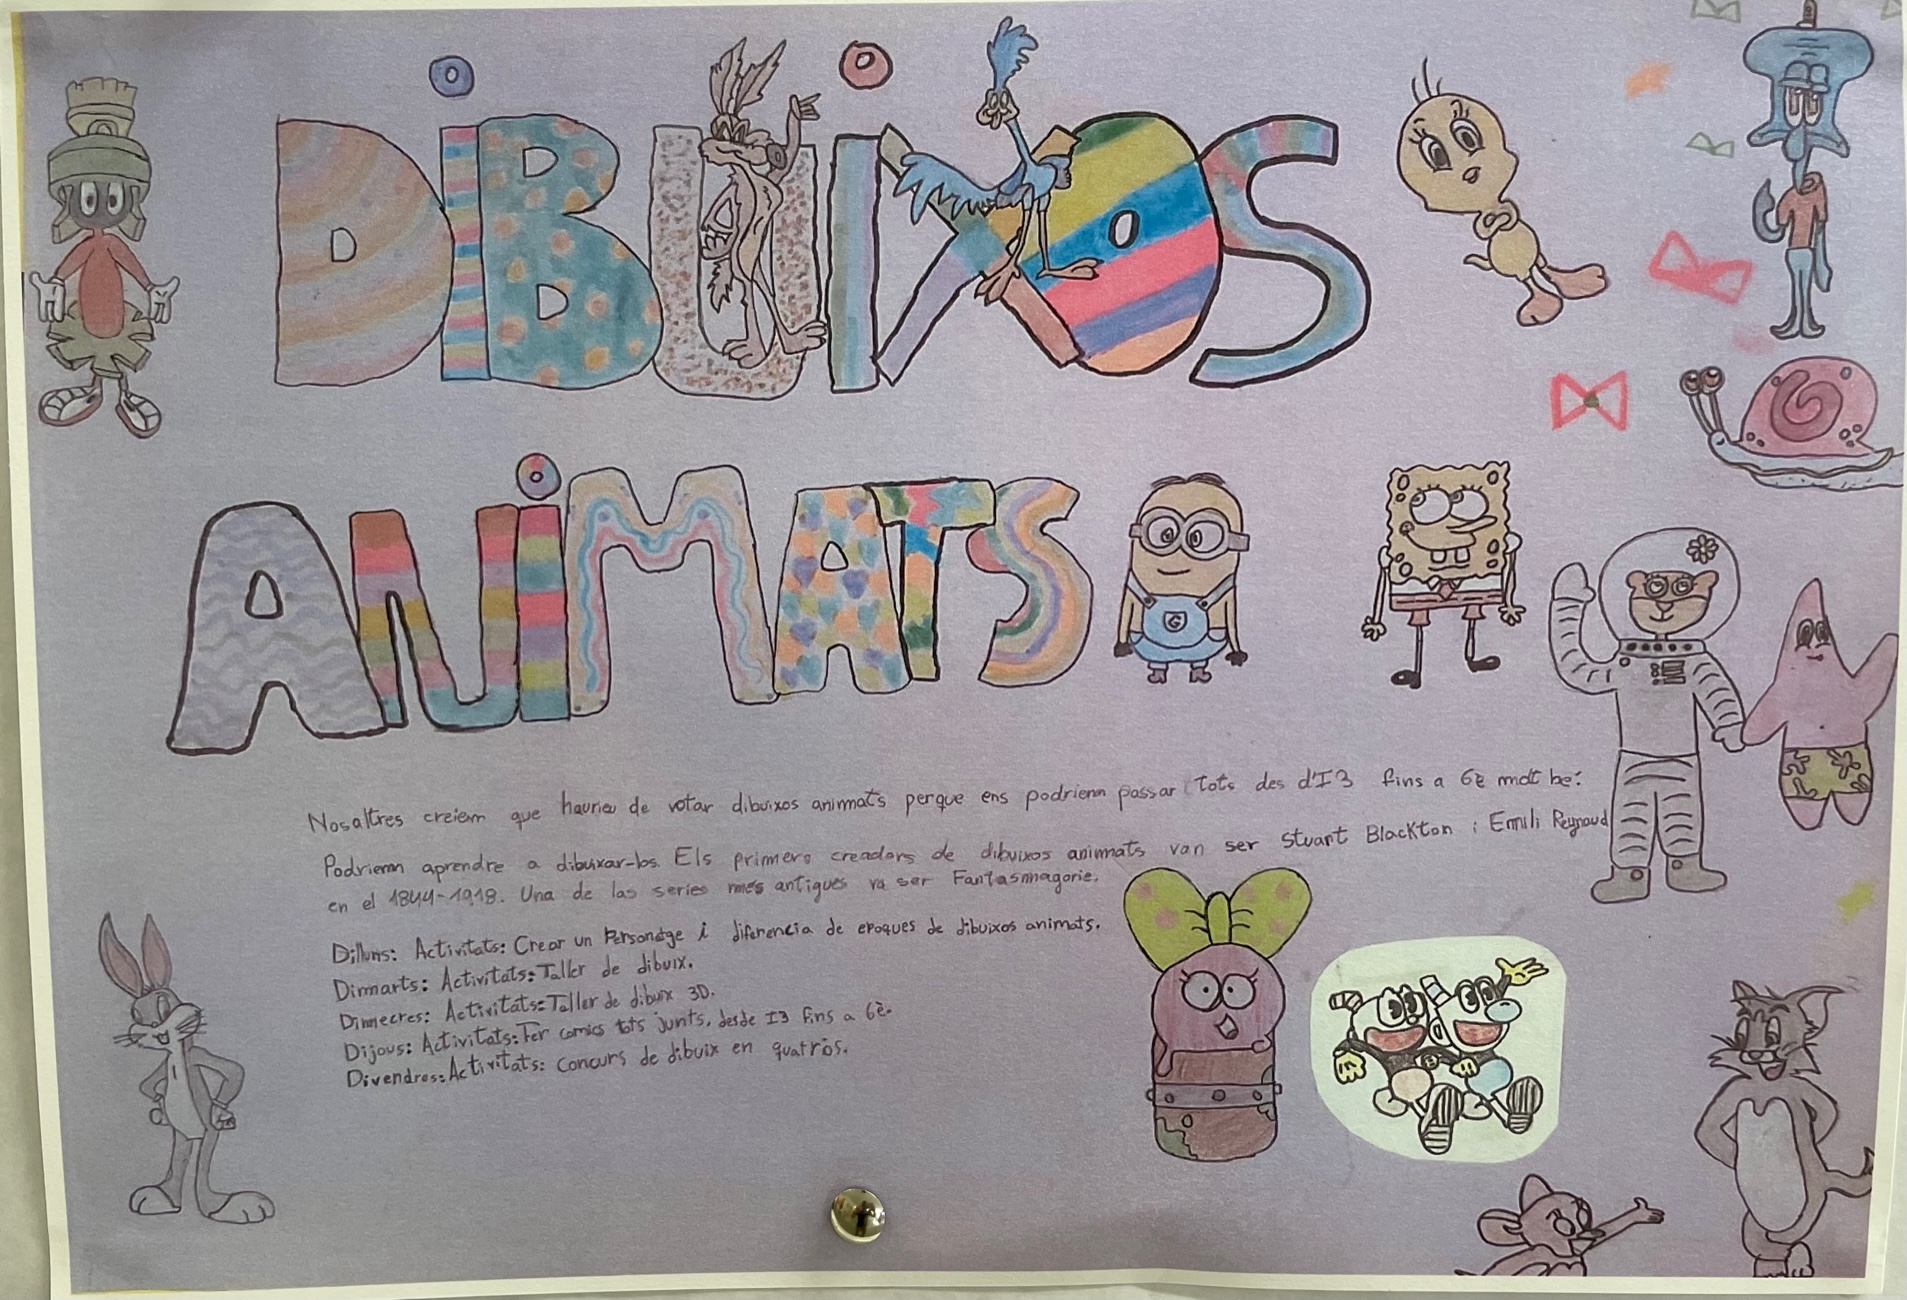 DiBUiXOS
ANiMATS
Nosaltres creiem que haurieu de votar dibuixos animats perque ens podriem passar tots des d'I3 fins a 6è molt be:
Podriem aprendre a dibuixar-los. Els primers creadors de dibuixos animats van ser Stuart Blackton i Emili Reynaud
en el 1844-1918. Una de las series mes antigues va ser Fantasmagorie.
Dilluns: Activitats: Crear un Personatge i diferencia de epoques de dibuixos animats.
Dimarts: Activitats: Taller de dibuix.
Dimecres: Activitats: Taller de dibuix 3D.
Dijous: Activitats: Fer comics tots junts, desde I3 fins a 6è.
Divendres: Activitats: Concurs de dibuix en quatròs.
G